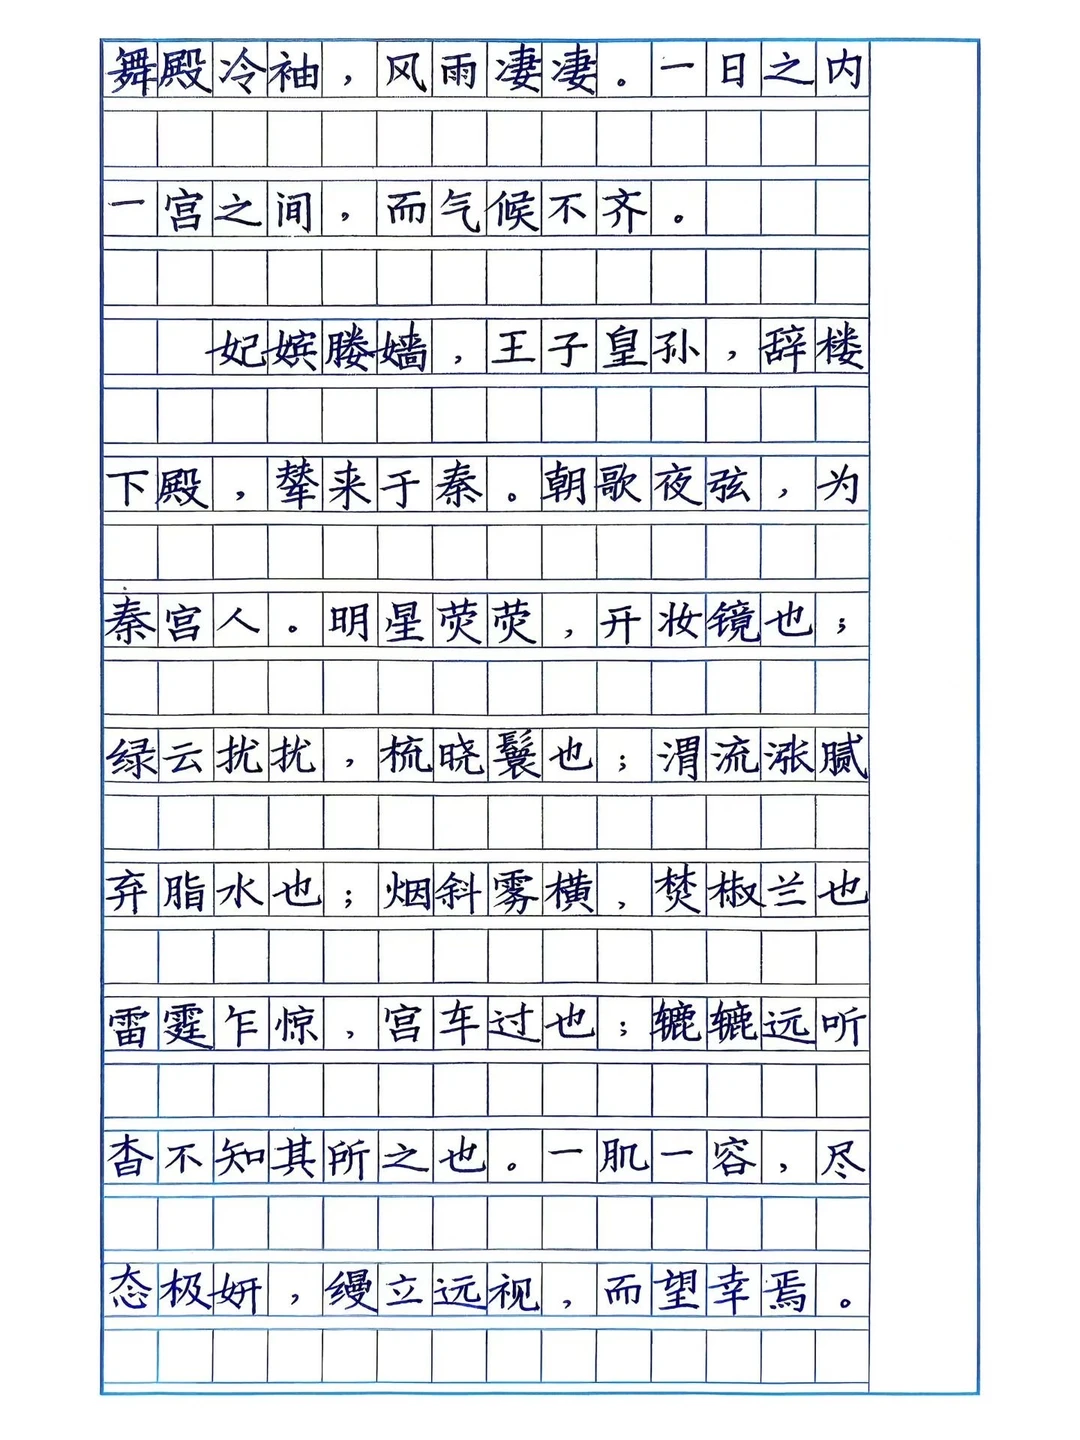 舞殿冷袖，风雨凄凄。一日之内
一宫之间，而气候不齐。
妃嫔媵嫱，王子皇孙，辞楼
下殿，辇来于秦。朝歌夜弦，为
秦宫人。明星荧荧，开妆镜也；
绿云扰扰，梳晓鬟也；渭流涨腻
弃脂水也；烟斜雾横，焚椒兰也
雷霆乍惊，宫车过也；辘辘远听
杳不知其所之也。一肌一容，尽
态极妍，缦立远视，而望幸焉。